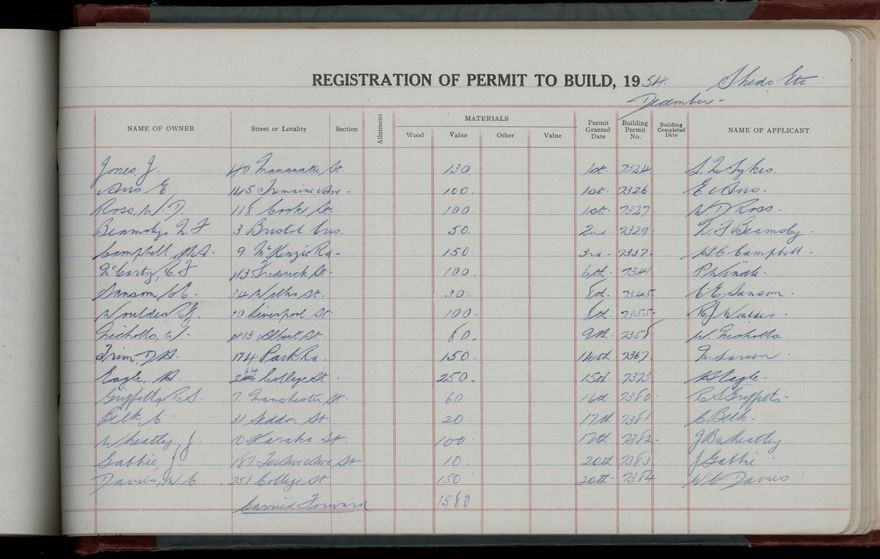 REGISTRATION OF PERMIT TO BUILD, 1954. Sheds Etc
December -
NAME OF OWNER Street or Locality Section Allotment MATERIALS Wood Value Other Value Permit Granted Date Building Permit No. Building Completed Date NAME OF APPLICANT
Jones, J. 40 Manawatu St 130. 1st. 7324
Avis E. 145 Tremaine Ave - 100. 1st. 7326 E Avis.
Ross, W. D. 118 Cook St. 100. 1st. 7327. W D Ross.
Beamsley, T. F 3 Bristol Cres. 50. 2nd. 7329 T. F Beamsley.
Campbell, 9 McKenzie Rd - 150. 3rd - 7337. Campbell -
McCarty, C. F 113 Frederick St. 100. 6th. 7341 P Windle.
Sanson, C E - 34 Wells St. 30. 8th. 7345. C E Sanson.
10 Liverpool St 100. 8th. 7355.
Nicholls, W. 413 Albert St. 60. 9th. 7358 W. Nicholls.
Trim, 174 Park Rd. 150. 14th. 7367
Eagle, H College St. 250. 15th. 7373 H Eagle -
Griffiths, R. S. 7 Manchester St. 60. 16th 7380. R S Griffiths -
Belk C - 31 Seddon St 20. 17th 7381 C Belk -
Wheatley, J. St. 100. 17th. 7382 - J Wheatley
Gabbie, J 187 St 10. 20th 7383 J Gabbie
Davies, W C. 251 College St 150 20th. 7384 W C Davies
Carried Forward 1580